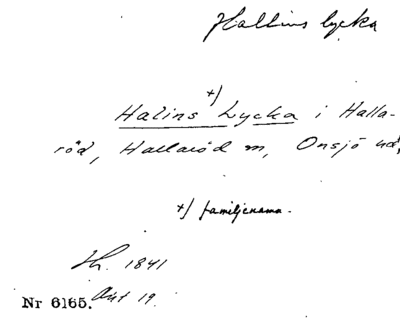 Hallins lycka
+)
Halins Lycka i Halla-
röd, Hallaröd sn, Onsjö hd,
+) familjenamn.
Sh. 1841
Akt 19.
Nr 6165.